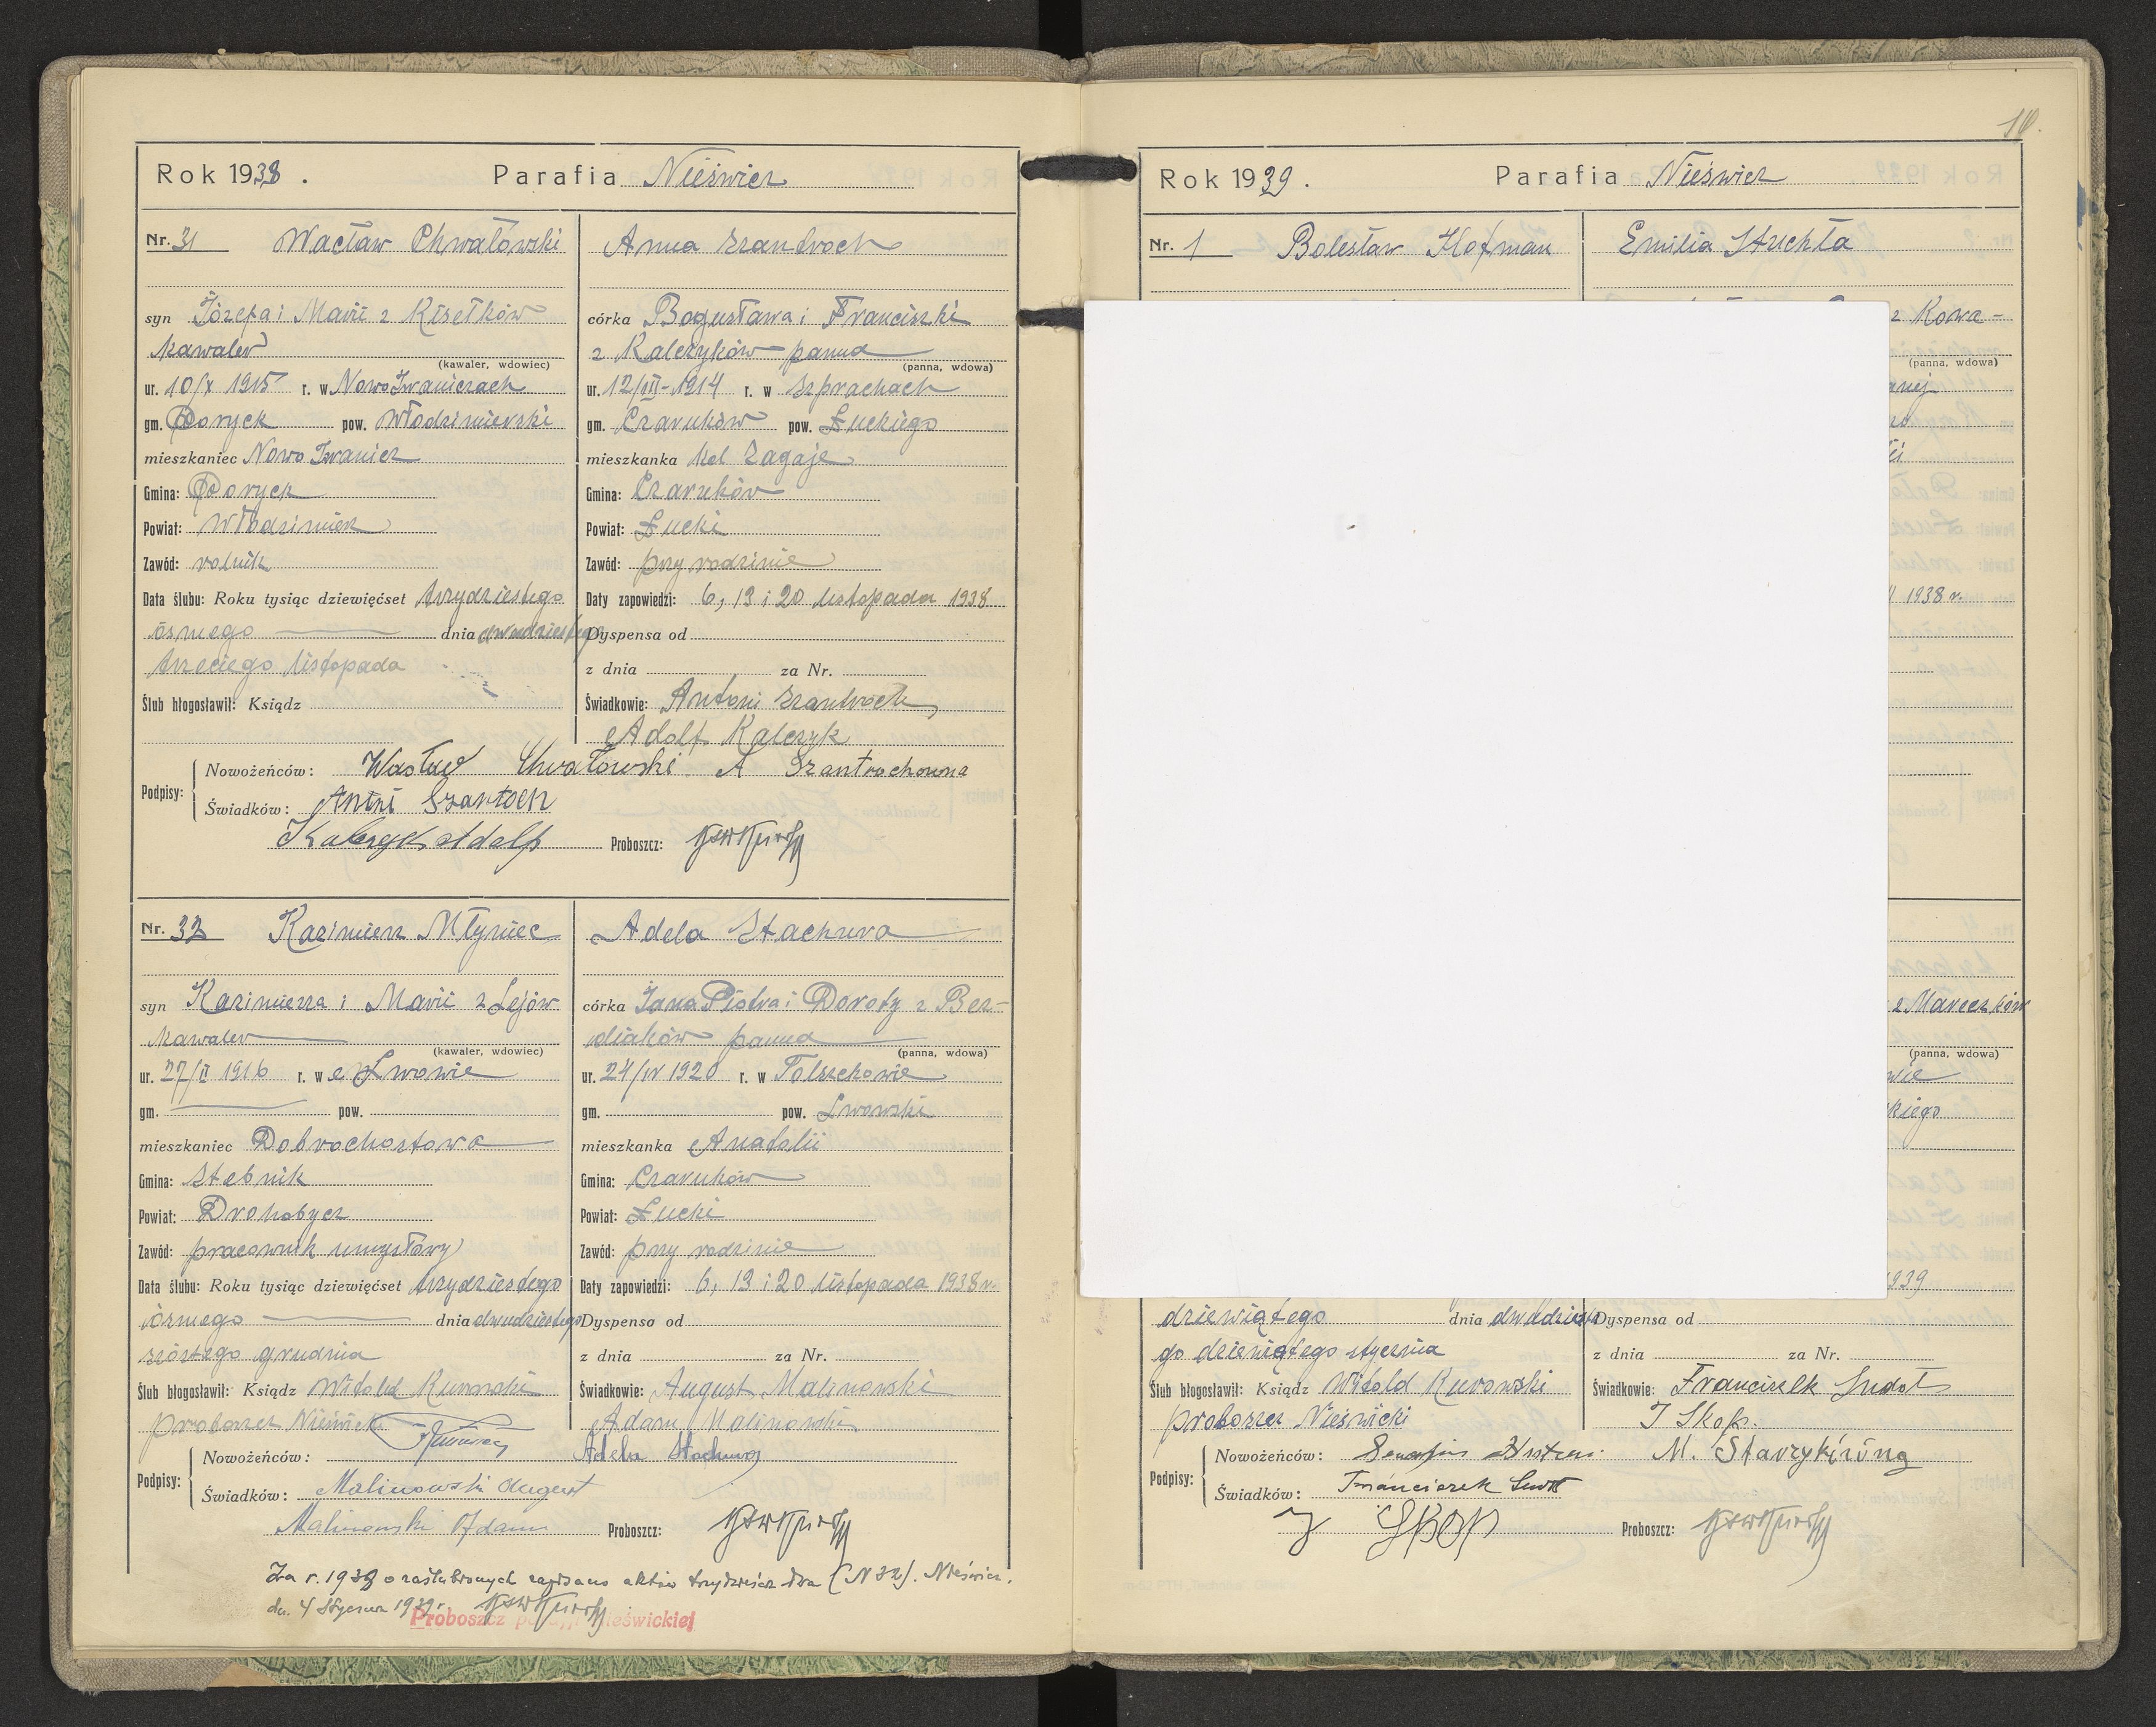 Rok 1938. Parafia Nieświcz
Nr. 31 Wacław Chwałowski
syn Józefa i Marii z Kisełków
kawaler
(kawaler, wdowiec)
ur. 10/X 1915 r. w Nowo Iwaniczach
gm. Poryck pow. Włodzimierski
mieszkaniec Nowo Iwanicz
Gmina: Poryck
Powiat: Włodzimierz
Zawód: rolnik
Data ślubu: Roku tysiąc dziewięćset trzydziestego
ósmego dnia dwudziestego
trzeciego listopada
Ślub błogosławił: Ksiądz
Anna Szantroch
córka Bogusława i Franciszki
z Kalczyków panna
(panna, wdowa)
ur. 12/III-1914 r. w Szprachach
gm. Czaruków pow. Łuckiego
mieszkanka kol Zagaje
Gmina: Czaruków
Powiat: Łucki
Zawód: przy rodzinie
Daty zapowiedzi: 6, 13 i 20 listopada 1938
Dyspensa od
z dnia za Nr.
Świadkowie: Antoni Szantroch,
Adolf Kalczyk
Podpisy:
Nowożeńców: Wacław Chwałowski A Szantrochowna
Świadków: Antni Szantoch
Kalczyk Adolf Proboszcz:
Nr. 32 Kazimierz Młyniec
syn Kazimierza i Marii z Lejów
kawaler
(kawaler, wdowiec)
ur. 27/II 1916 r. w e Lwowie
gm. pow.
mieszkaniec Dobrochostowa
Gmina: Stebnik
Powiat: Drohobycz
Zawód: pracownik umysłowy
Data ślubu: Roku tysiąc dziewięćset trzydziestego
ósmego dnia dwudziestego
szóstego grudnia
Ślub błogosławił: Ksiądz Witold Kurowski
proboszcz
Adela Stachura
córka Jana Piotra i Doroty z Ber-
diaków panna
(panna, wdowa)
ur. 24/IV 1920 r. w Tolszchowie
gm. pow. Lwowski
mieszkanka Anatolii
Gmina: Czaruków
Powiat: Łucki
Zawód: przy rodzinie
Daty zapowiedzi: 6, 13 i 20 listopada 1938 r.
Dyspensa od
z dnia za Nr.
Świadkowie: August Malinowski
Adam Malinowski
Podpisy:
Nowożeńców: Adela Stachura
Świadków: Malinowski August
Malinowski Adam Proboszcz:
Za r. 1938 o zaślubionych zapisano aktów trzydzieści dwa (N 32). Nieświcz.
dn. 4 stycznia 1939 r.
Proboszcz parafji Nieświckiej
10.
Rok 1939. Parafia Nieświcz
Nr. 1 Bolesław Hofman
Emilia Stuchła
z Kowa-
(panna, wdowa)
1938 r.
z Mareczków
(panna, wdowa)
wie
kiego
1939
dziewiątego dnia dwudzieste
go dziewiątego stycznia
Ślub błogosławił: Ksiądz Witold Kurowski
proboszcz Nieświcki
Dyspensa od
z dnia za Nr.
Świadkowie: Franciszek Sudoł
J Skop.
Podpisy:
Nowożeńców: M.
Świadków: Franciszek
J Skop Proboszcz: